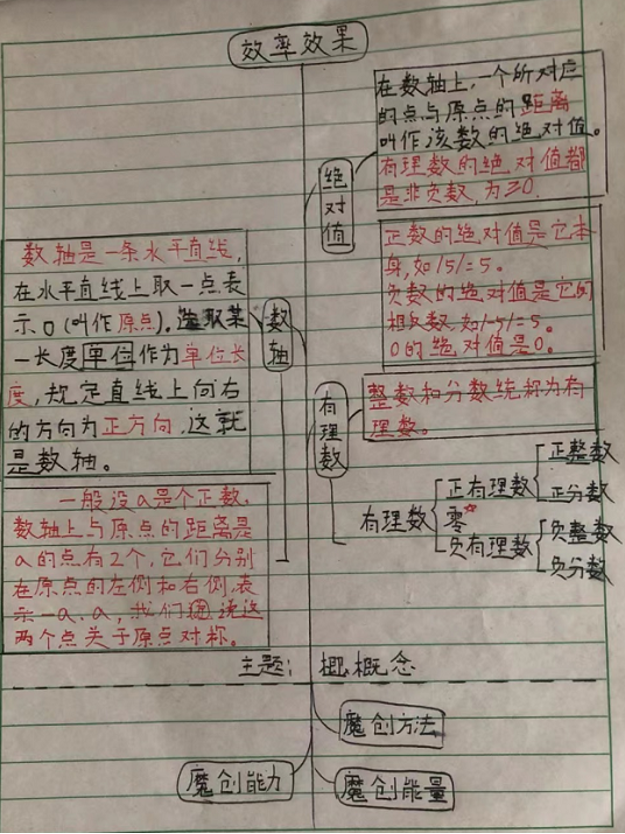 效率效果
在数轴上,一个所对应
的点与原点的距离
叫作该数的绝对值。
有理数的绝对值都
是非负数,为≥0.
绝
对
值
正数的绝对值是它本
身,如|5|=5。
负数的绝对值是它的
相反数,如|-5|=5。
0的绝对值是0。
数轴是一条水平直线,
在水平直线上取一点表
示0(叫作原点),选取某
一长度单位作为单位长
度,规定直线上向右
的方向为正方向,这就
是数轴。
数
轴
有
理
数
整数和分数统称为有
理数。
有理数
正有理数
正整数
正分数
零
负有理数
负整数
负分数
一般设a是个正数,
数轴上与原点的距离是
a的点有2个,它们分别
在原点的左侧和右侧,表
示-a、a,我们 说这
两个点关于原点对称。
主题: 概念
魔创方法
魔创能力
魔创能量